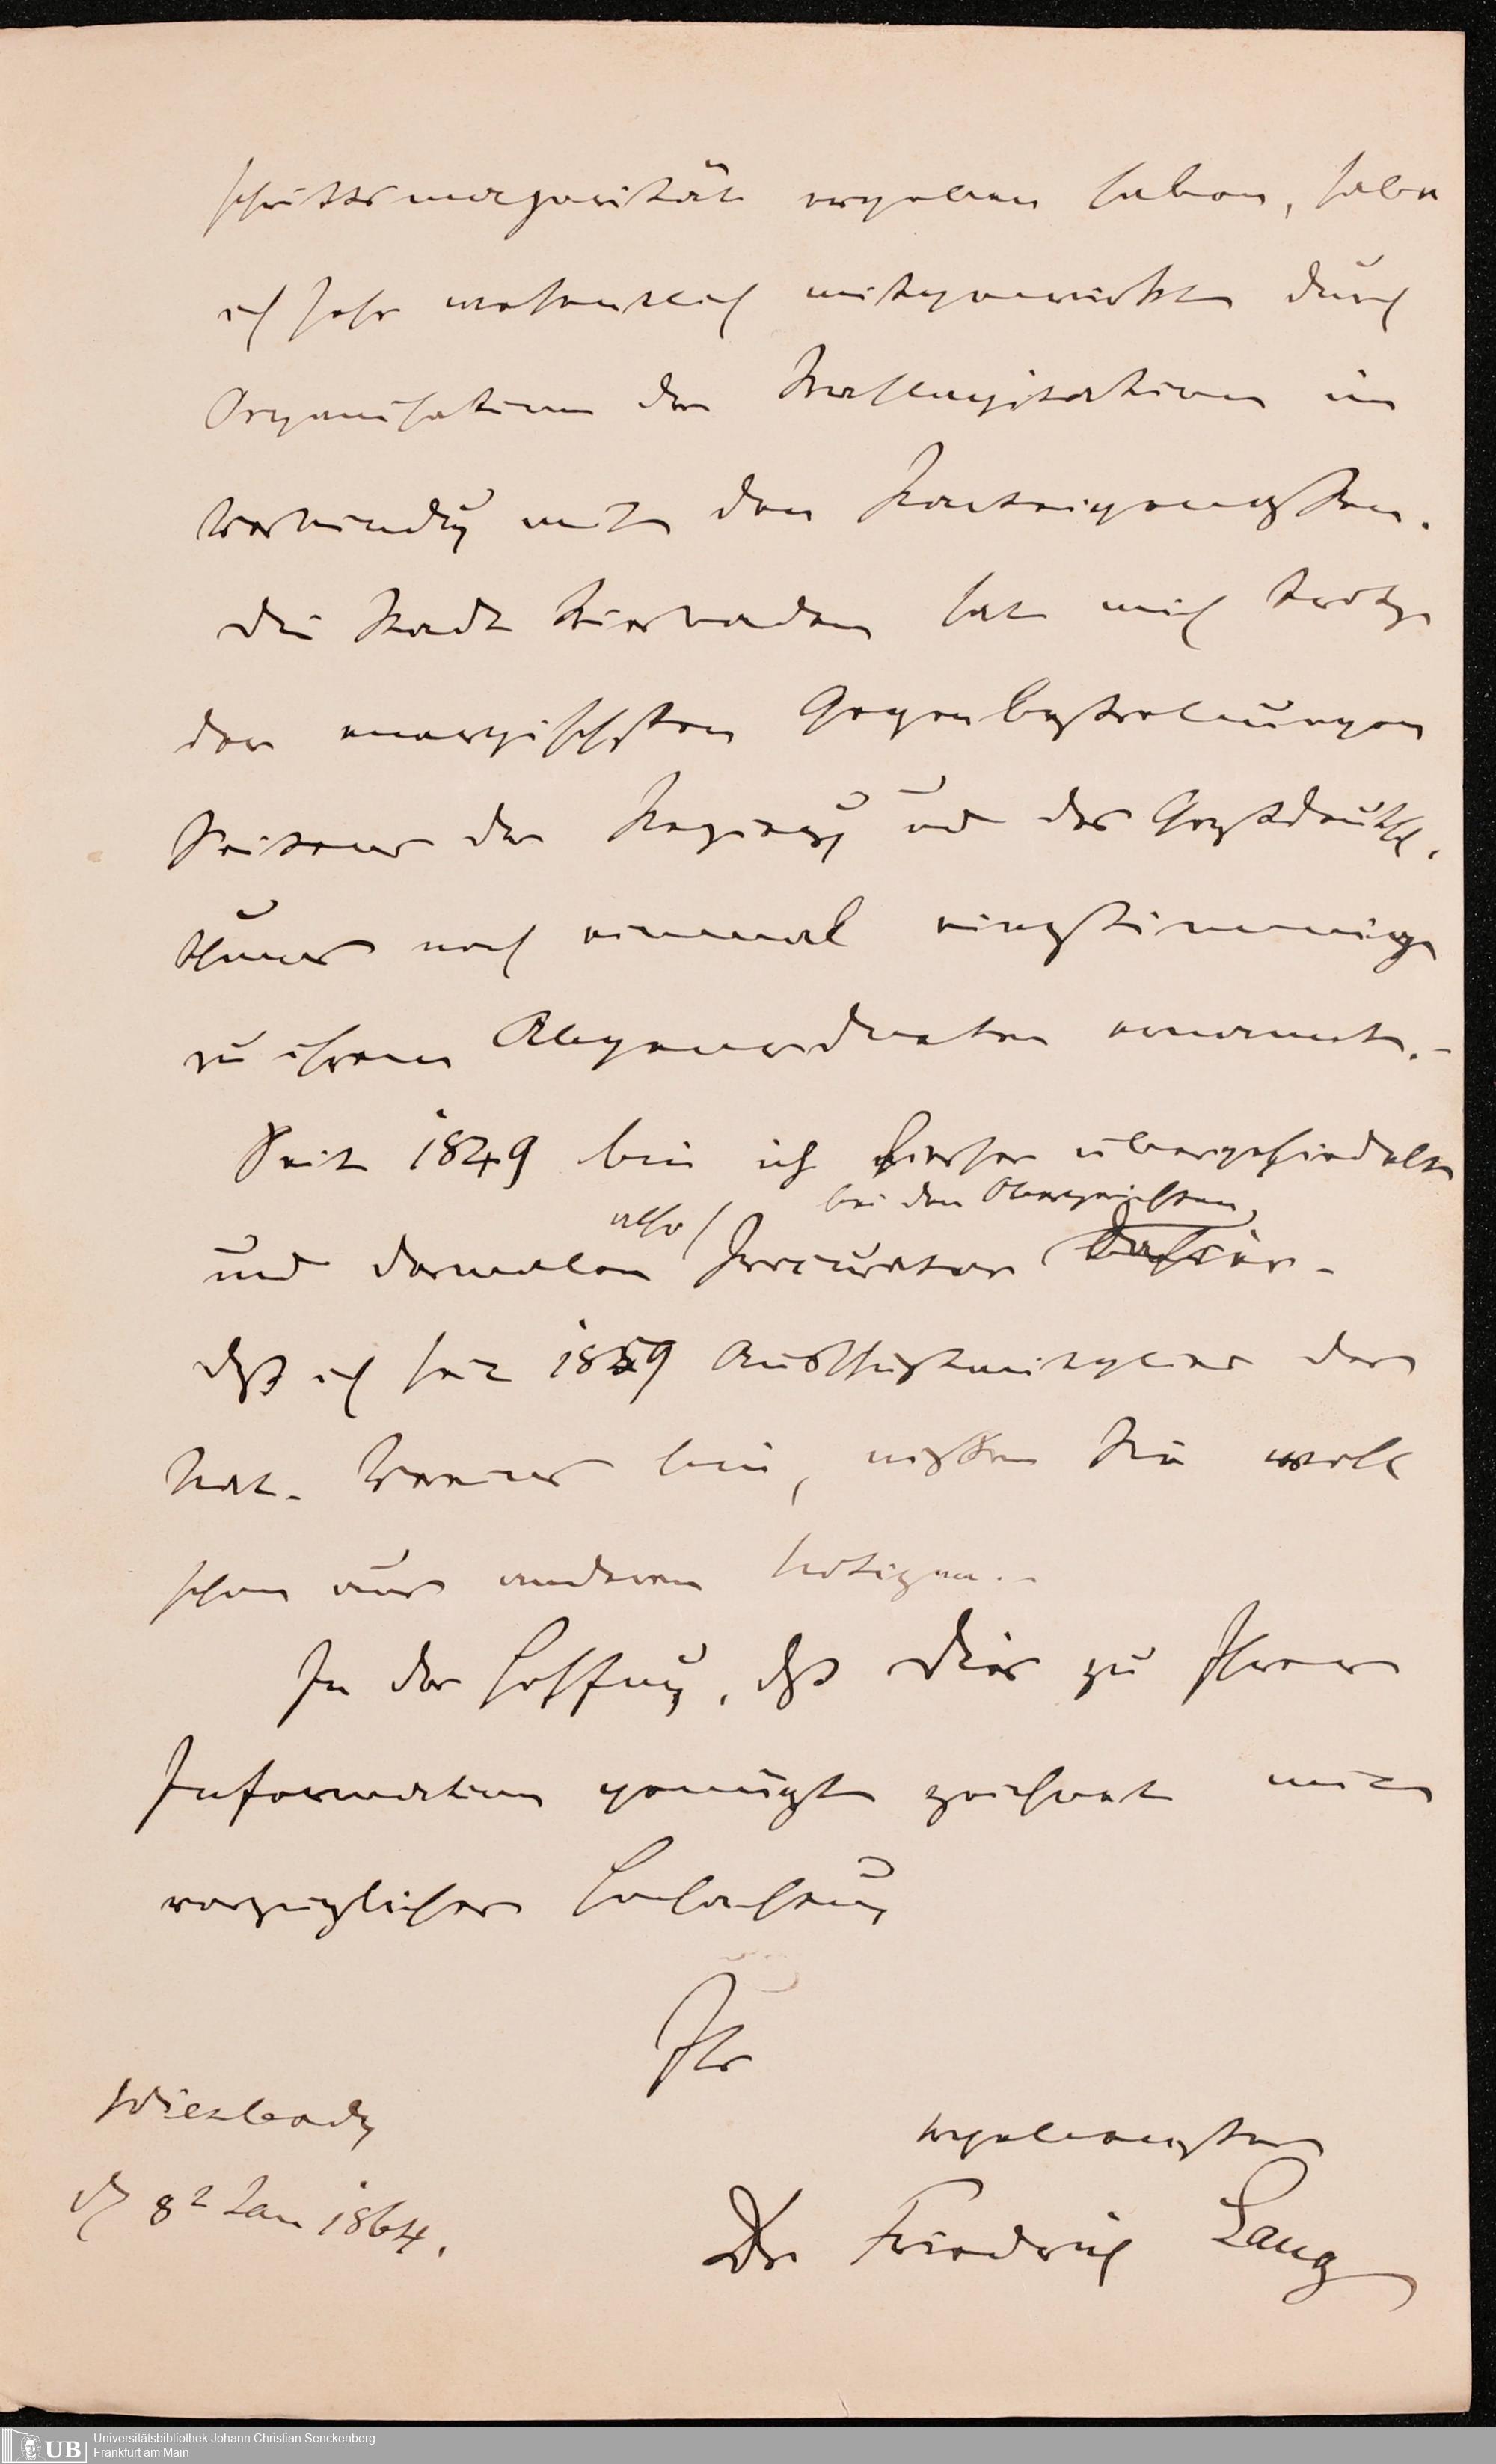 schrittsmajorität ergeben haben, habe
ich sehr wesentlich mitgewirkt durch
Organisation der Wahlagitation in
Verbindung mit den Parteigenossen.
Die Stadt Wiesbaden hat mich trotz
der energischsten Gegenbestrebungen
Seitens der Regierung und des Großdeutsch-
thums noch einmal einstimmig
zu ihrem Abgeordneten ernannt.-
Seit 1849 bin ich hierher übergesiedelt
also bei den Obergerichten,
und dermalen Procurator dahier.-
Daß ich seit 1859 Ausschußmitglied des
Nat. Vereins bin, wissen Sie wohl
schon aus anderen Notizen.-
In der Hoffnung, daß Dies zu Ihrer
Information genügt zeichnet mit
vorzüglicher Hochachtung
Ihr
Wiesbaden ergebenster
d 8t Jan 1864.
Dr Friedrich Lang
UB Universitätsbibliothek Johann Christian Senckenberg
Frankfurt am Main